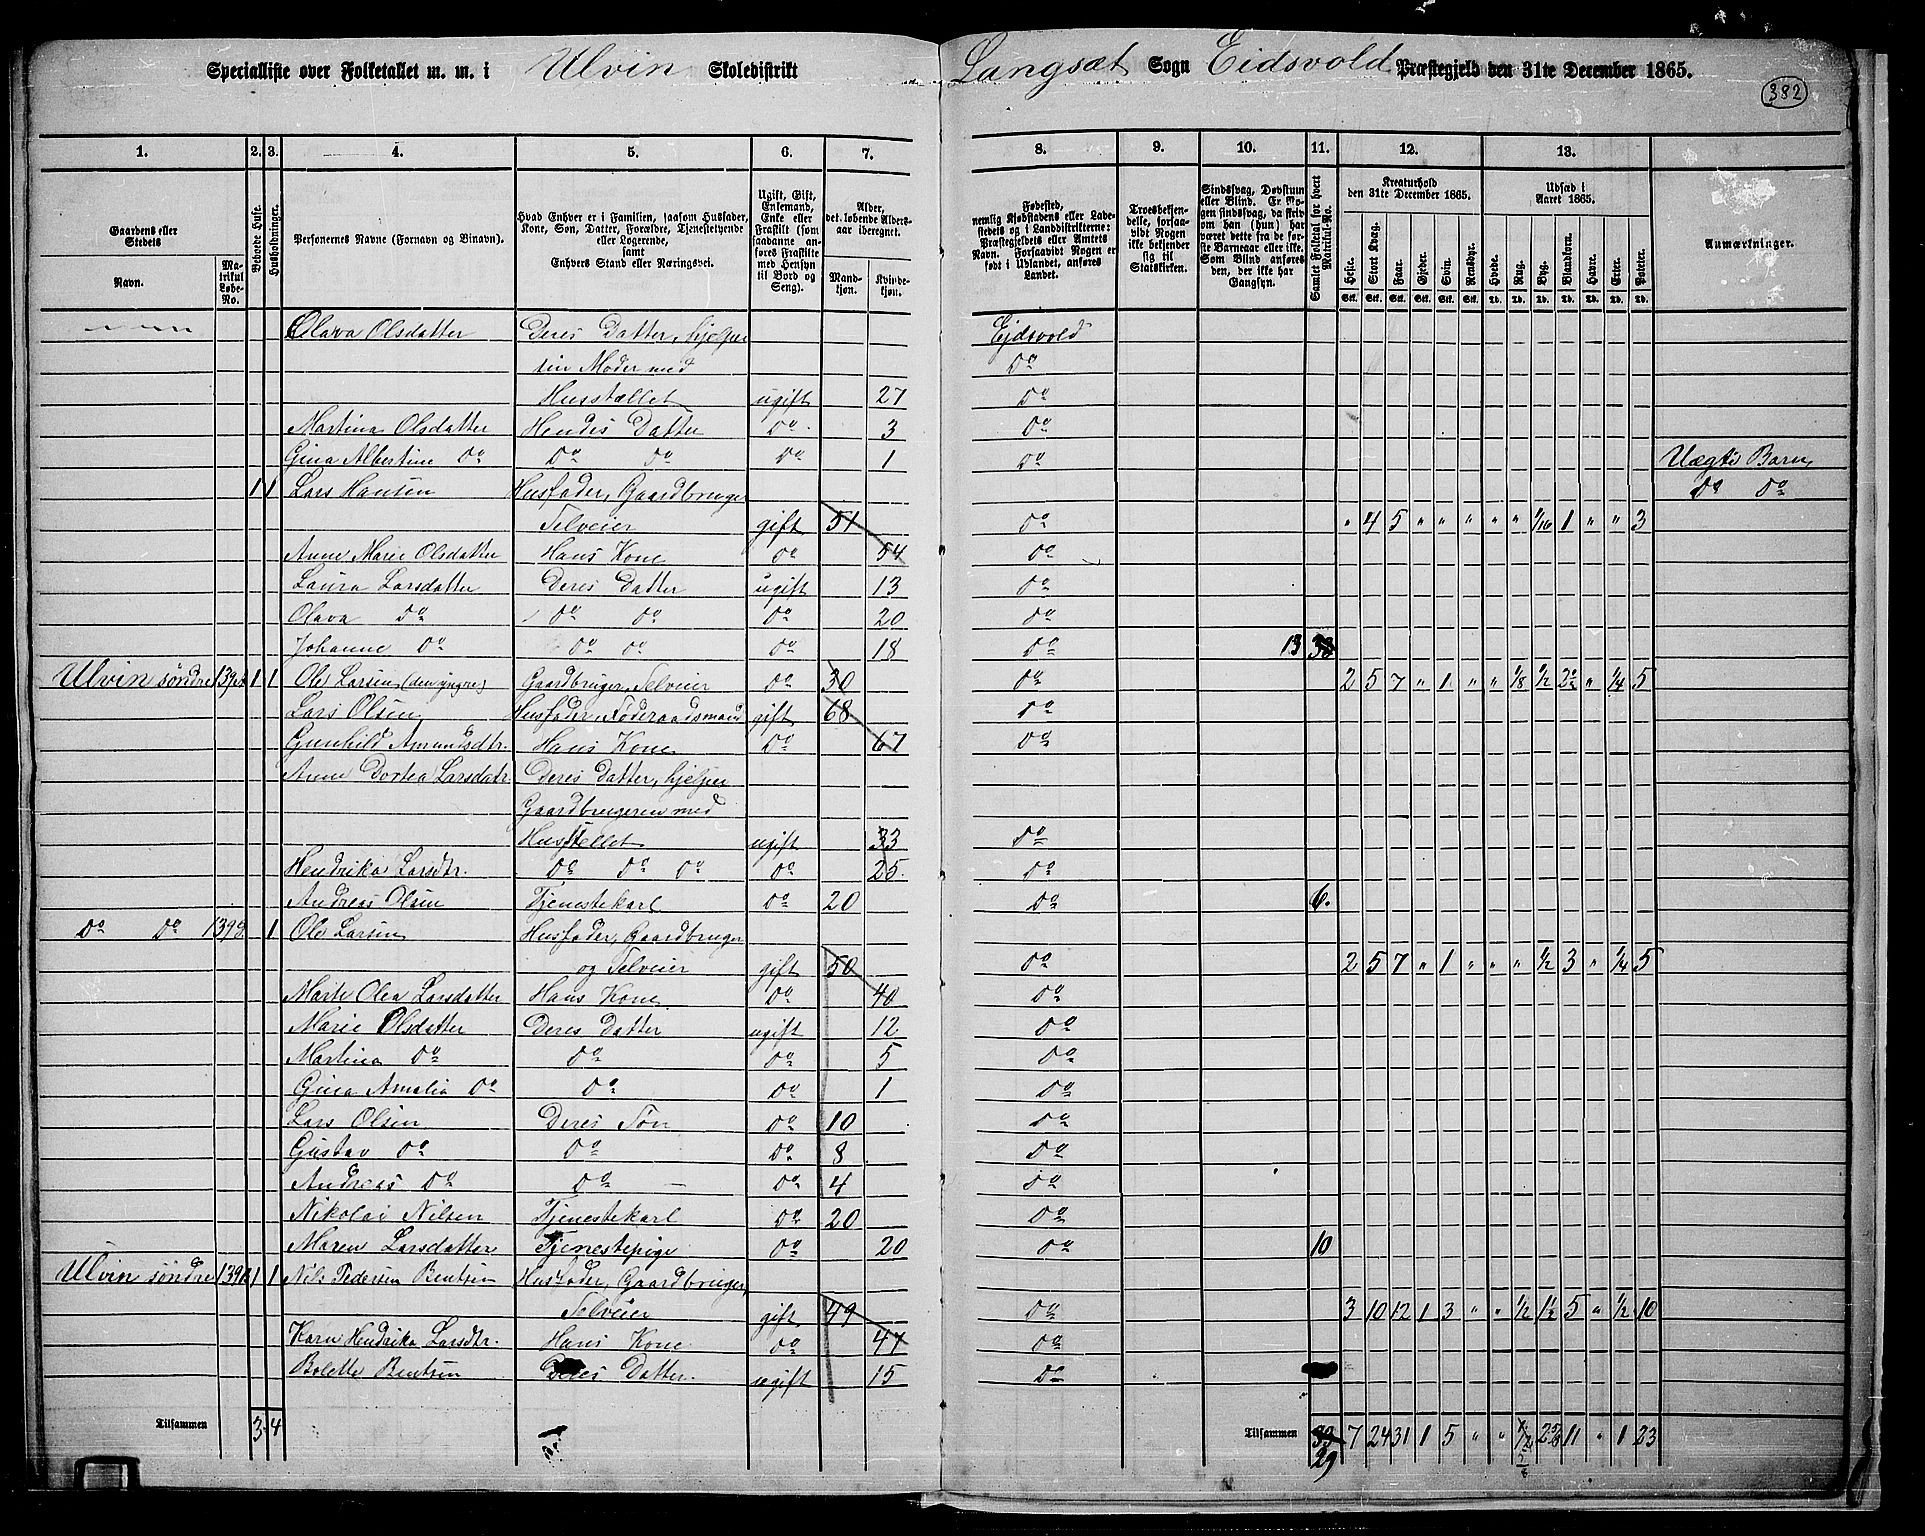 Specialliste over Folketallet m. m. i Ulvin Skoledistrikt Langsæt Sogn Eidsvold Præstegjeld den 31te December 1865.
382
1. 2. 3. 4. 5. 6. 7. 8. 9. 10. 11. 12. 13.
Gaardens eller Stedets
Navn.
Matrikul Løbe-No.
Beboede Huse.
Husholdninger.
Personernes Navne (Fornavn og Binavn).
Hvad Enhver er i Familien, saasom Husfader, Kone, Søn, Datter, Forældre, Tjenestetyende eller Logerende, samt Enhvers Stand eller Næringsvei.
Ugift, Gift, Enkemand, Enke eller Fraskilt (som saadanne anføres Fraskilte med Hensyn til Bord og Seng).
Alder, det løbende Aldersaar iberegnet.
Mandkjøn. Kvindekjøn.
Fødested, nemlig Kjøbstadens eller Ladestedets og i Landdistrikterne: Præstegjeldets eller Amtets Navn. Forsaavidt Nogen er født i Udlandet, anføres Landet.
Troesbekjendelse, forsaavidt Nogen ikke bekjender sig til Statskirken.
Sindssvag, Døvstum eller Blind. Er Nogen sindssvag, da skriv om han (hun) har været dette fra de første Barneaar eller ikke. Som Blind anføres den, der ikke har Gangsyn.
Samlet Folketal for hvert Matrikul-No.
Kreaturhold den 31te December 1865.
Heste. Stort Kvæg. Faar. Gjeder. Svin. Rensdyr.
Udsæd i Aaret 1865.
Hvede. Rug. Byg. Blandkorn. Havre. Erter. Poteter.
Anmærkninger.
Olava Olsdatter Deres Datter, hjelper Ejdsvold
sin Moder med Do
Husstællet ugift 27 Do
Martina Olsdatter Hendes Datter Do 3 Do
Gina Albertine Do Do Do Do 1 Do Uægte Barn
1 1 Lars Hansen Husfader, Gaardbruger Do Do
Selveier gift 51 Do " 4 5 " " " " " 1/16 1 " " 3
Anne Marie Olsdatter Hans Kone Do 54 Do
Laura Larsdatter Deres Datter ugift 13 Do
Olava Do Do Do Do 20 Do
Johanne Do Do Do Do 18 Do 13
Ulvin søndre 1 1 Ole Larsen (den yngre) Gaardbruger, Selveier Do 30 Do 2 5 7 " 1 " " 1/8 1/2 " 1/4 5
Lars Olsen Husfader, Føderaadsmand gift 68 Do
Gunhild Amundsdtr. Hans Kone Do 67 Do
Anne Dortea Larsdatr. Deres Datter, hjelper
Gaardbrugeren med
Husstellet ugift 33 Do
Hendrika Larsdtr. Do Do Do Do 25. Do
Andreas Olsen Tjenestekarl Do 20 Do 6.
Do Do 1 Ole Larsen Husfader, Gaardbruger
og Selveier gift 50 Do 2 5 7 " 1 " " " 1/2 3 " 1/4 5
Marte Olea Larsdatter Hans Kone Do 40 Do
Marie Olsdatter Deres Datter ugift 12 Do
Martina Do Do Do 5 Do
Gina Amalia Do Do Do 1 Do
Lars Olsen Deres Søn Do 10 Do
Gustav Do Do Do 8 Do
Andreas Do Do Do 4 Do
Nikolai Nilsen Tjenestekarl Do 20 Do
Maren Larsdatter Tjenestepige Do 20 Do 10
Ulvin søndre 1 1 Nils Pedersen Bentsen Husfader, Gaardbruger,
Selveier gift 49 Do 3 10 12 1 3 " " 1/2 1 1/2 5 " 1/2 10
Karn Hendrika Larsdtr. Hans Kone Do 47 Do
Bolette Bentsen Deres Datter. ugift 15 Do
Tilsammen 3 4 Tilsammen 29 7 24 31 1 5 " " 11 " 1 23